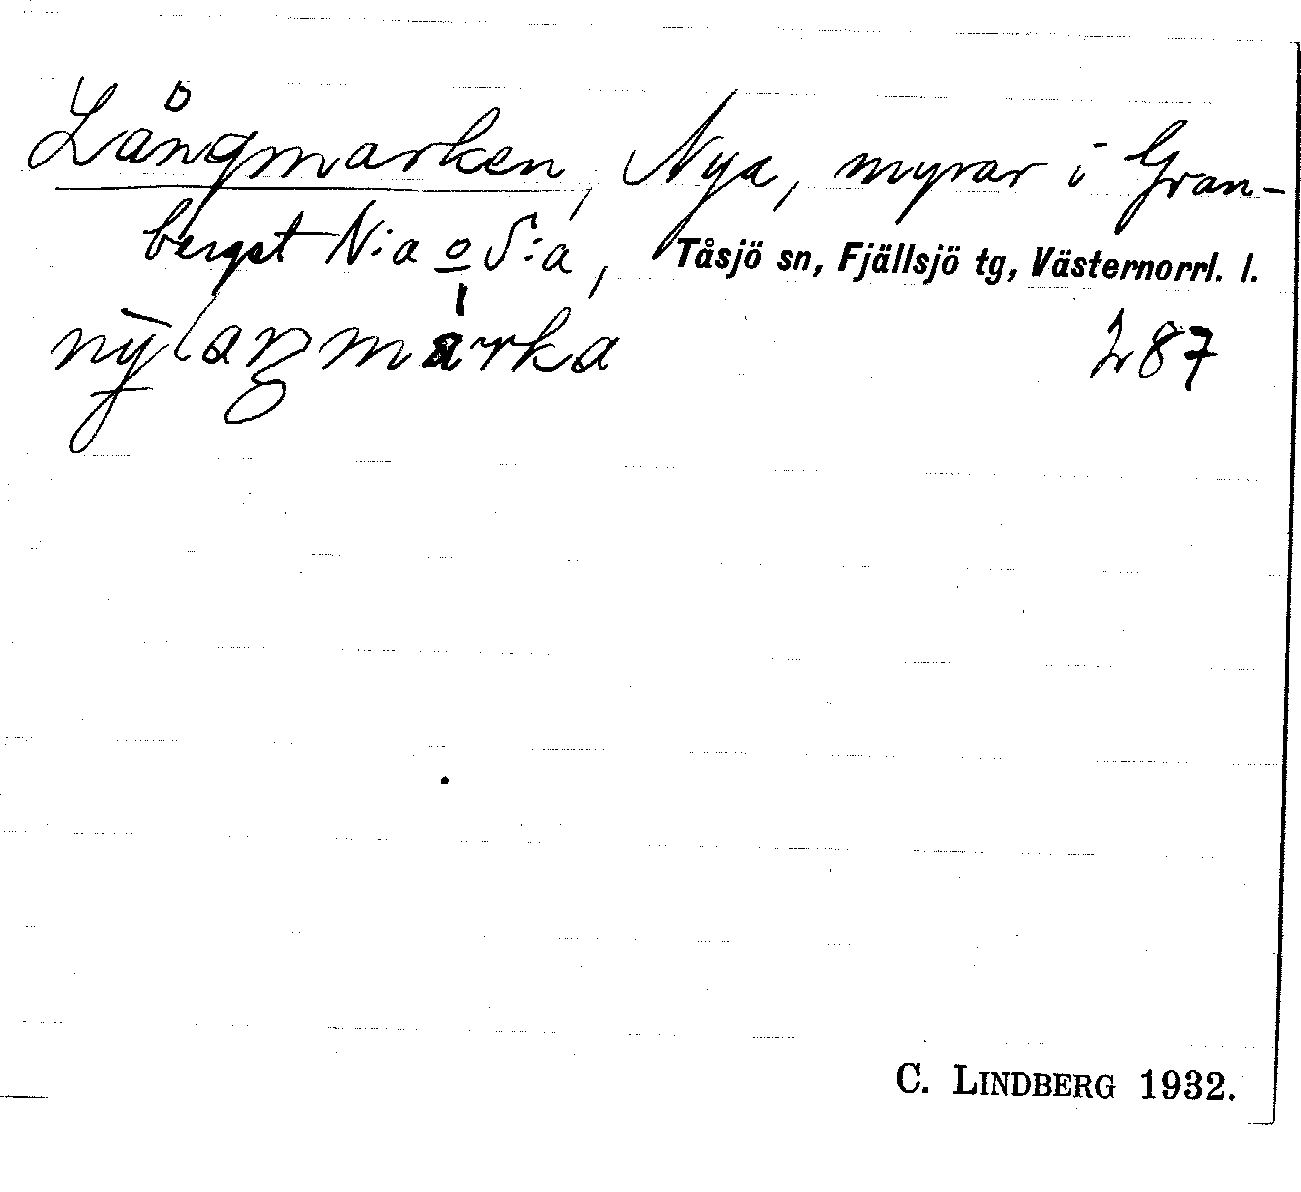 Långmarken, Nya, myrar i Gran-
berget N:a o S:a, Tåsjö sn, Fjällsjö tg, Västernorrl. l.
nȳlaŋmàrka 287
C. LINDBERG 1932.